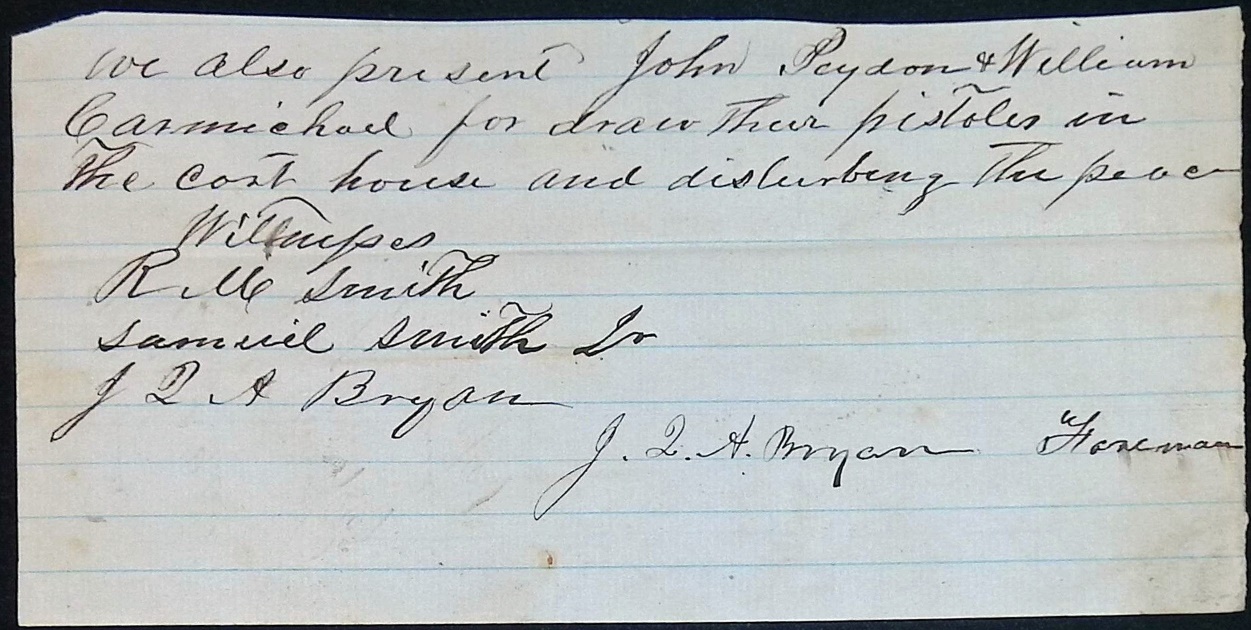 we also present John Peydon & William
Carmichael for draw their pistoles in
the cort house and disturbing the peac
Wittnesses
R M Smith
Samuel Smith Jr
J Q A Bryan
J. Q. A. Bryan Foreman